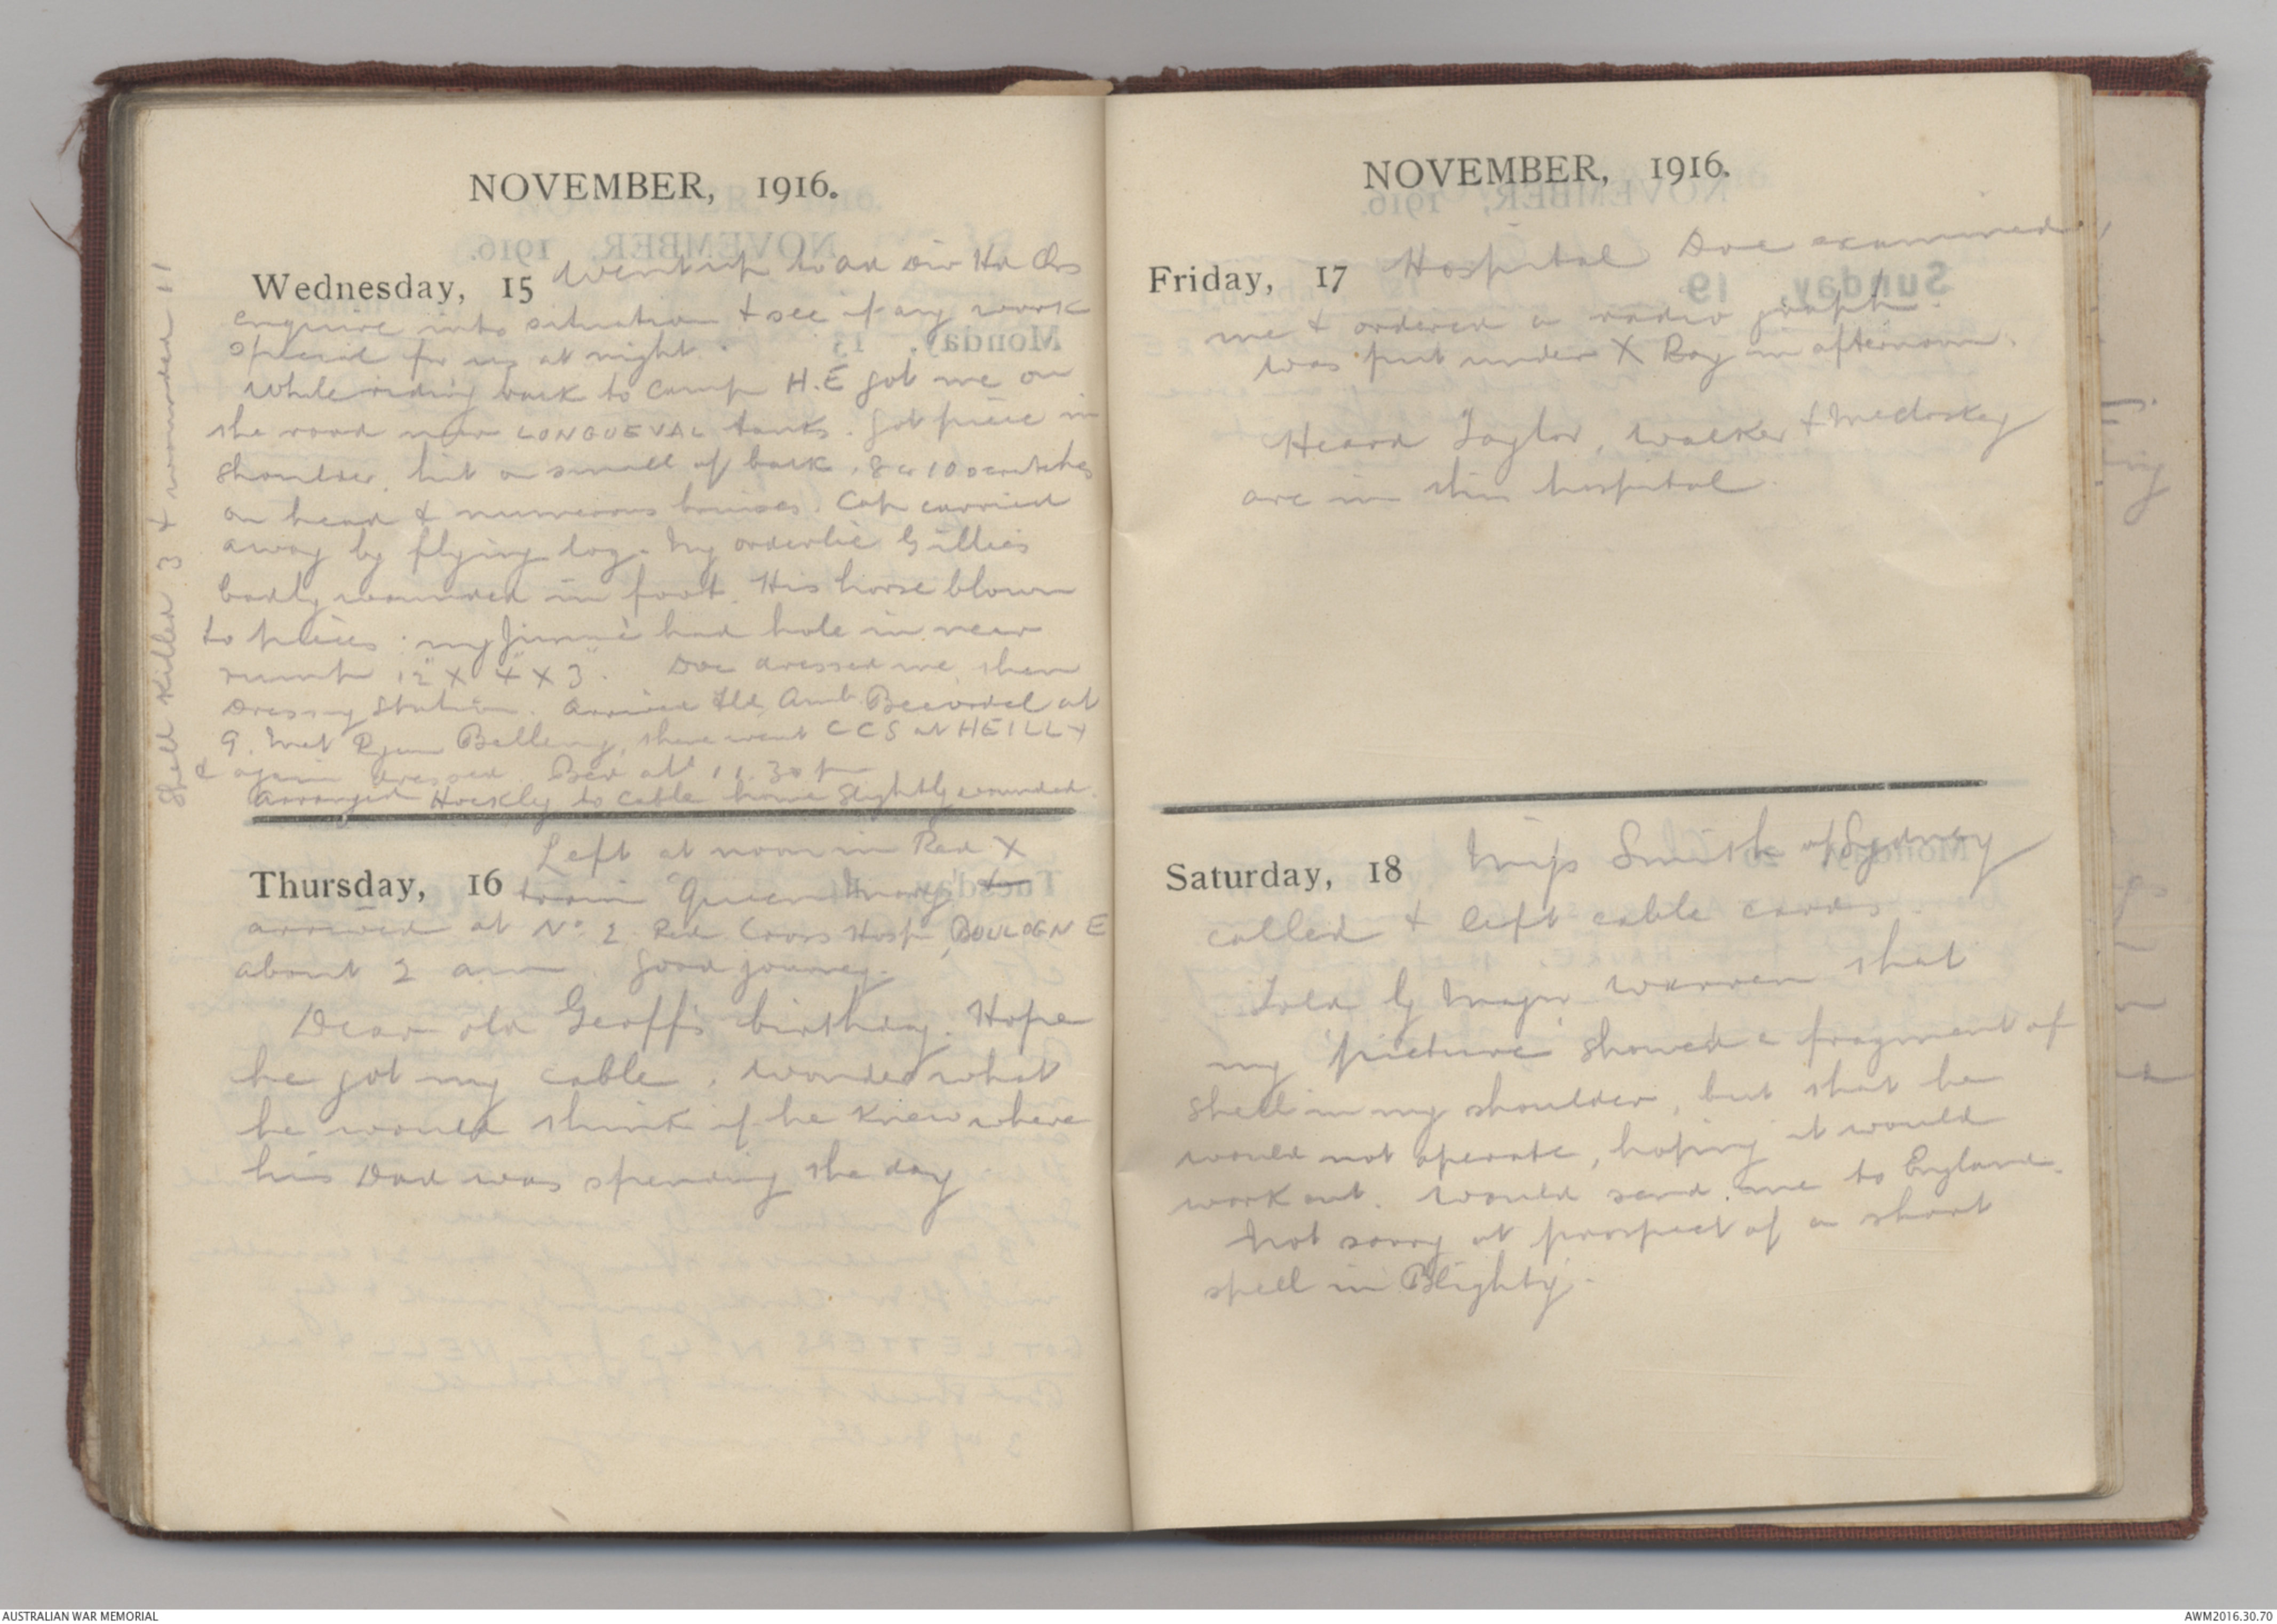 NOVEMBER, 1916.
Wednesday, 15 Went up to Adv Div Hd Qrs
enquire into situation & see if any work
special for us at night.
While riding back to camp H.E got me on
the road near LONGUEVAL tanks. Got piece in
shoulder, hit on small of back, 8 or 10 scratches
on head & numerous bruises. Cap carried
away by flying log. My orderlie Gillies
badly wounded in foot. His horse blown
to pieces: my Jimmie had hole in near
rump 12" X 4" X 3". Doc dressed me, then
Dressing Station. Arrived Fld Amb Becordel at
9. Met Ryan Bellemy, then went CCS at HEILLY
& again dressed. Bed at 11.30 p
Arranged Hockly to cable home slightly wounded.
Shell killed 3 & wounded 11
Thursday, 16 Left at noon in Red X
train "Queen Mary"
arrived at No. 2 Red Cross Hosp, BOULOGNE
about 2 am. Good journey.
Dear old Geoff's birthday. Hope
he got my cable. Wonder what
he would think if he knew where
his Dad was spending the day
NOVEMBER, 1916.
Friday, 17 Hospital Doc examined
me & ordered a radio graph.
Was put under X Ray in afternoon.
Heard Taylor, Walker & McCloskey
are in this hospital.
Saturday, 18 Miss Smith of Sydney
called & left cable cards.
Told by Major Warren that
my 'picture' showed a fragment of
shell in my shoulder, but that he
would not operate, hoping it would
work out. Would send me to England.
Not sorry at prospect of a short
spell in Blighty.
AUSTRALIAN WAR MEMORIAL
AWM2016.30.70